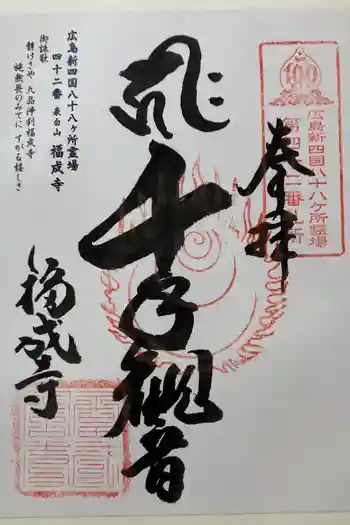 奉拝
広島新四国八十八ヶ所霊場
第四十二番札所
千手観音
福成寺
広島新四国八十八ヶ所霊場
四十二番 表白山 福成寺
御詠歌
静けさや 九品浄刹福成寺
施無畏のみてに すがる嬉しさ